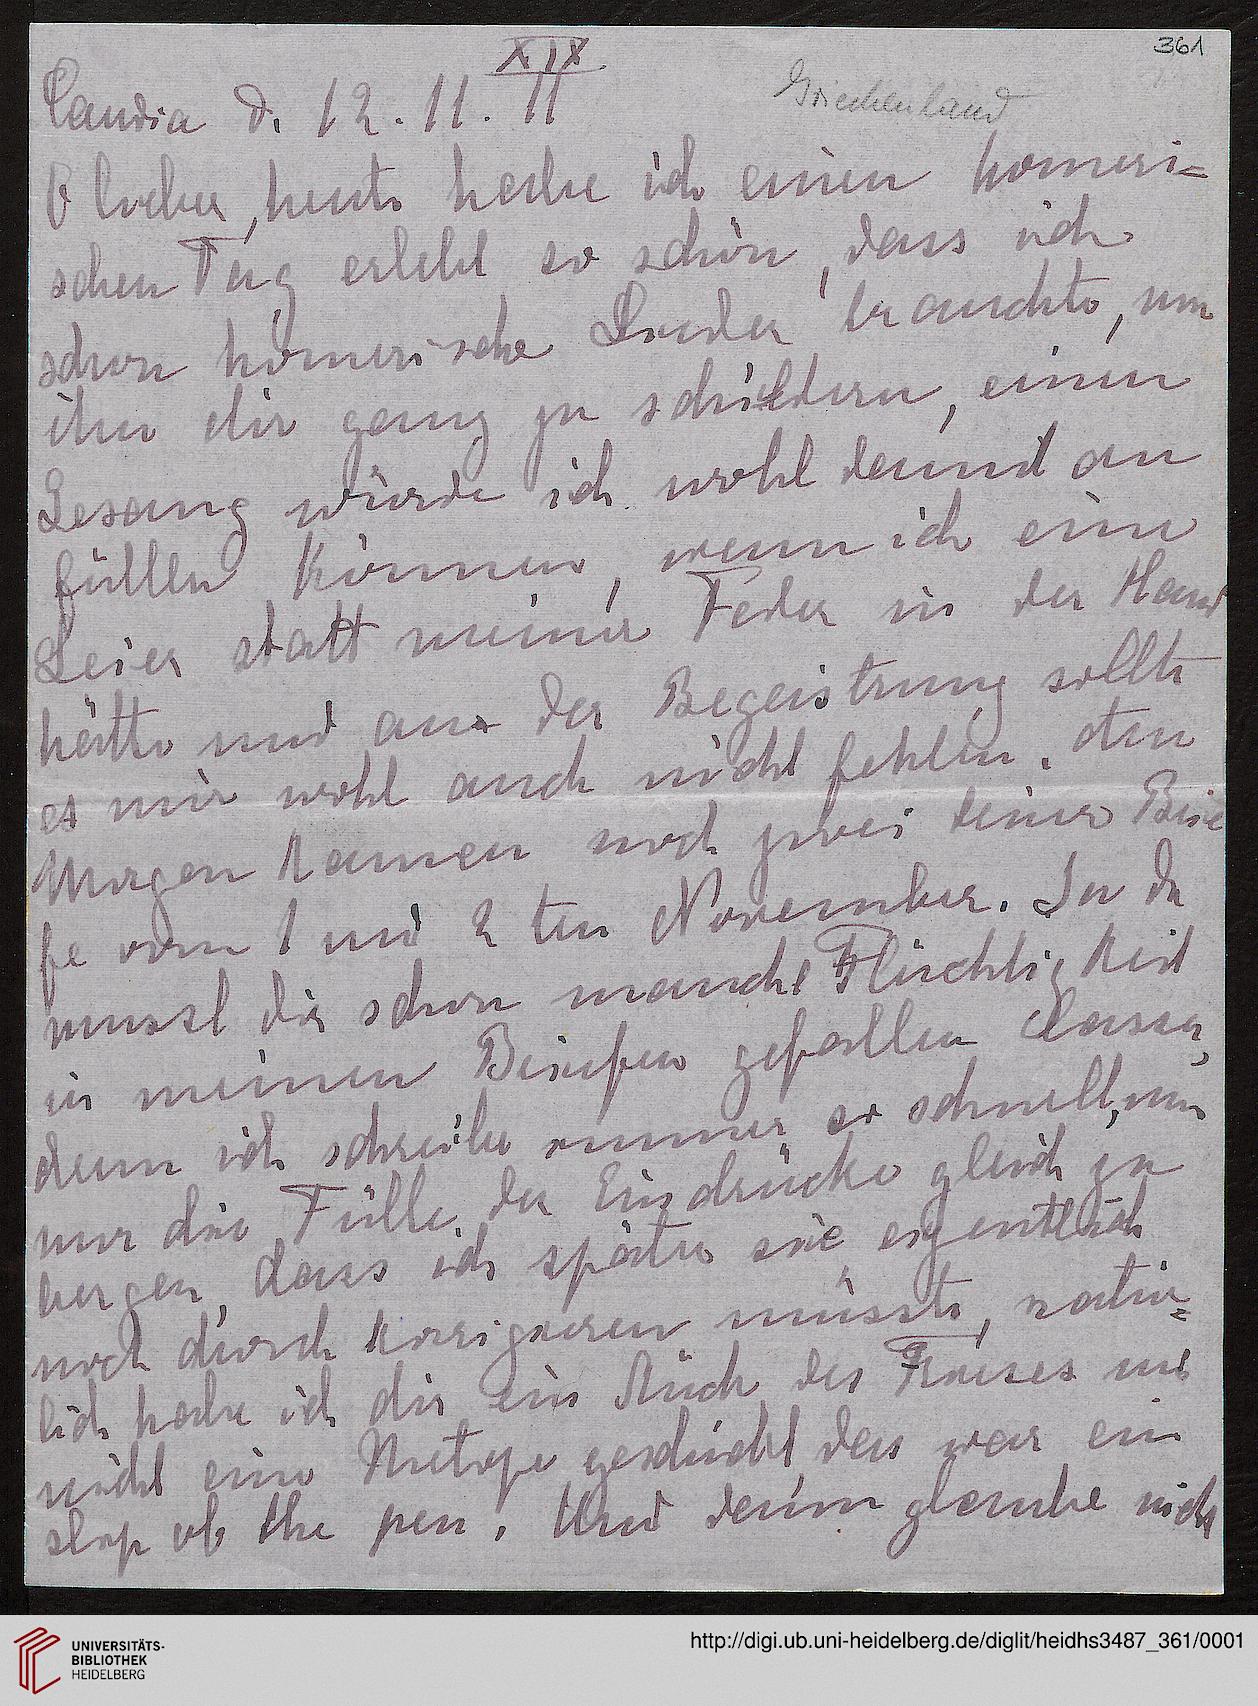 361
XIX.
Griechenland
Candia d. 12. 11. 11
O lieber, heute habe ich einen homeri-
schen Tag erlebt so schön, dass ich
schon homerische Lieder brauchte, um
ihn dir ganz zu schildern, einen
Gesang würde ich wohl damit an
füllen können, wenn ich eine
Leier statt meiner Feder in der Hand
hätte und an der Begeistrung sollte
es mir wohl auch nicht fehlen.
Morgen kamen noch zwei deiner Brie
fe vom 1 und 2 ten November. Ja du
musst dir schon manche Flüchtigkeit
in meinen Briefen gefallen lassen,
denn ich schreibe immer so schnell, um
nur die Fülle der Eindrücke gleich zu
bergen, dass ich später sie eigentlich
noch durch korrigieren müsste, natür=
lich habe ich dir ein Stück des Frieses und
nicht eine Metope geschickt das war ein
slip of the pen. Und dann glaube nicht
UNIVERSITÄTS-
BIBLIOTHEK
HEIDELBERG
http://digi.ub.uni-heidelberg.de/diglit/heidhs3487_361/0001